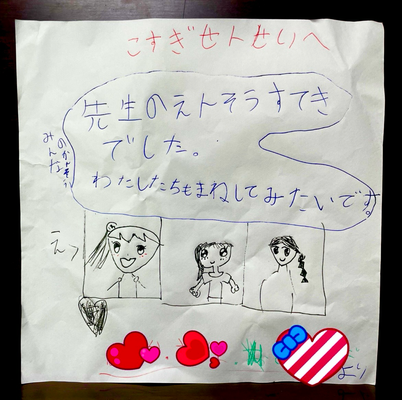 こすぎせんせいへ
先生のえんそうすてき
でした。
わたしたちもまねしてみたいです。
みんな
のかんそう
え
より